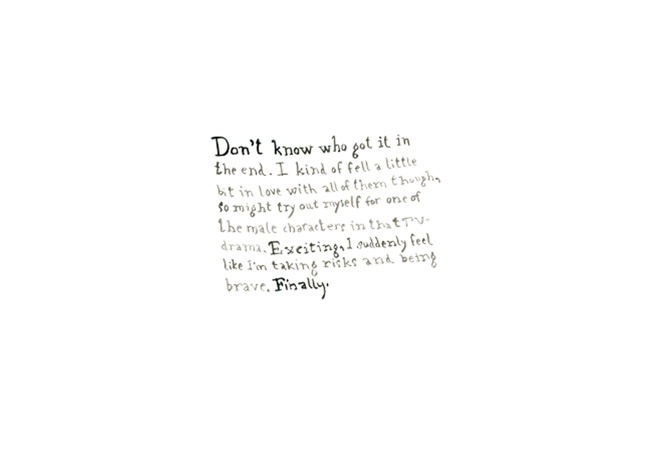 Don't know who got it in
the end. I kind of fell a little
bit in love with all of them though,
so might try out myself for one of
the male characters in that TV-
drama. Exciting, I suddenly feel
like I'm taking risks and being
brave. Finally.